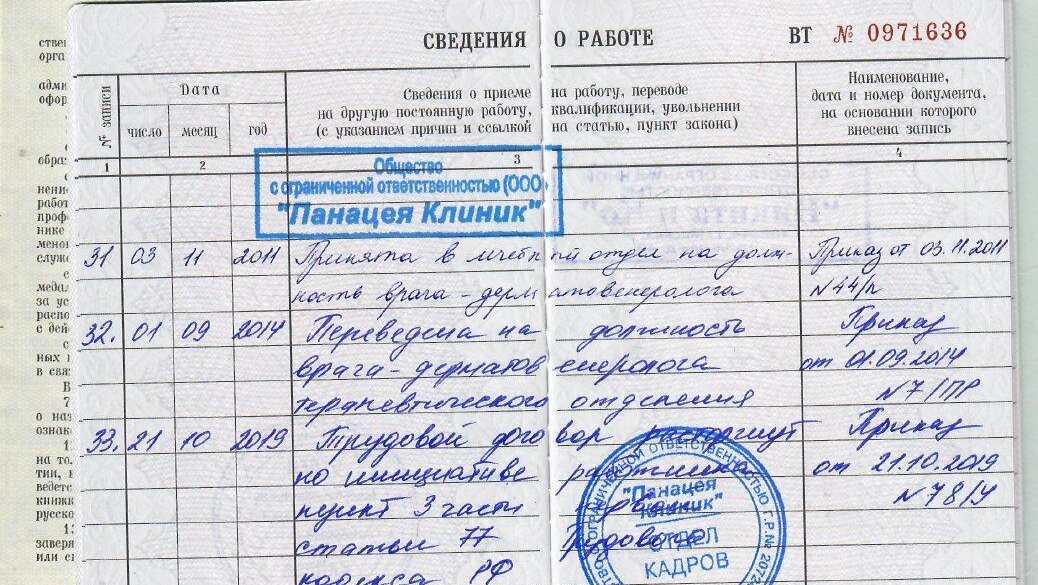 СВЕДЕНИЯ О РАБОТЕ ВТ № 0971636
№ записи
Дата
число месяц год
Сведения о приеме на работу, переводе
на другую постоянную работу, квалификации, увольнении
(с указанием причин и ссылкой на статью, пункт закона)
Наименование,
дата и номер документа,
на основании которого
внесена запись
1 2 3 4
Общество
с ограниченной ответственностью (ООО
"Панацея Клиник"
31 03 11 2011 Принята в лечебный отдел на долж- Приказ от 03.11.2011
ность врача-дерматовенеролога N44/л
32. 01 09 2014 Переведена на должность Приказ
врача-дерматовенеролога от 01.09.2014
терапевтического отделения N7/ПР
33. 21 10 2019 Трудовой договор расторгнут Приказ
по инициативе от 21.10.2019
пункт 3 части N78/У
статьи 77 Трудового
кодекса РФ
"Панацея
Клиник"
ОТДЕЛ
КАДРОВ